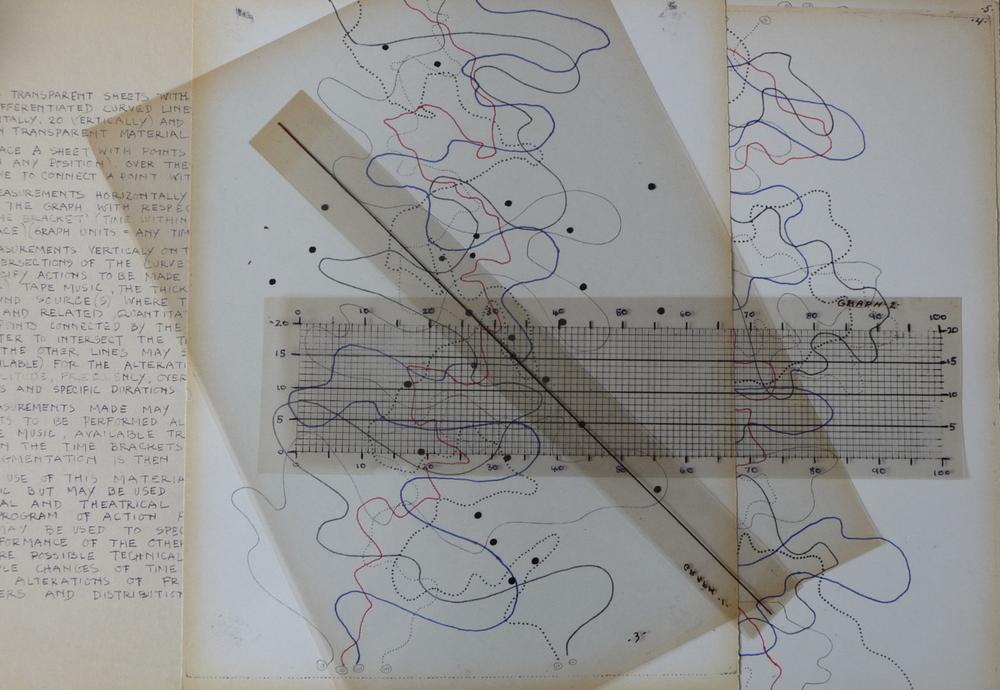 TRANSPARENT SHEETS WITH
FFERENTIATED CURVED LINE
NTALLY, 20 VERTICALLY) AND
N TRANSPARENT MATERIAL
ACE A SHEET WITH POINTS
N ANY POSITION). OVER THE
NE TO CONNECT A POINT WIT
EASUREMENTS HORIZONTALLY
THE GRAPH WITH RESPEC
ME BRACKET" (TIME WITHIN
ACE) (GRAPH UNITS = ANY TIM
ASUREMENTS VERTICALY ON T
ERSECTIONS OF THE CURVE
CIFY ACTIONS TO BE MADE
) TAPE MUSIC, THE THICK
UND SOURCE(S) WHERE T
AND RELATED, QUANTITA
POINTS CONNECTED BY THE
TER TO INTERSECT THE T
THE OTHER LINES MAY S
ILABLE) FOR THE ALTERATI
LITUDE, FREQUENCY, OVER
S AND SPECIFIC DURATIONS
ASUREMENTS MADE MAY
TS TO BE PERFORMED AL
E MUSIC, AVAILABLE TR
N THE TIME BRACKETS
GMENTATION IS THEN
USE OF THIS MATERIA
IC BUT MAY BE USED
AL AND THEATRICAL
PROGRAM OF ACTION
MAY BE USED TO SPEC
FORMANCE OF THE OTHE
RE POSSIBLE TECHNICAL
LE CHANGES OF TIME
ALTERATIONS OF FR
ERS AND DISTRIBUTION
GRAPH 2
0 10 20 30 40 50 60 70 80 90 100
20 20
15 15
10 10
5 5
0 10 20 30 40 50 60 70 80 90 100
GRAPH 1.
-3-
-5-
-4-